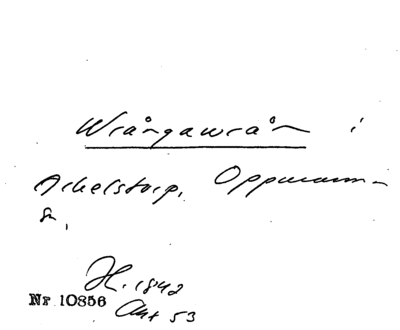 Wrångawrån i
Arkelstorp, Oppmanna-
sn,
H. 1842
Nr 10856
Akt 53